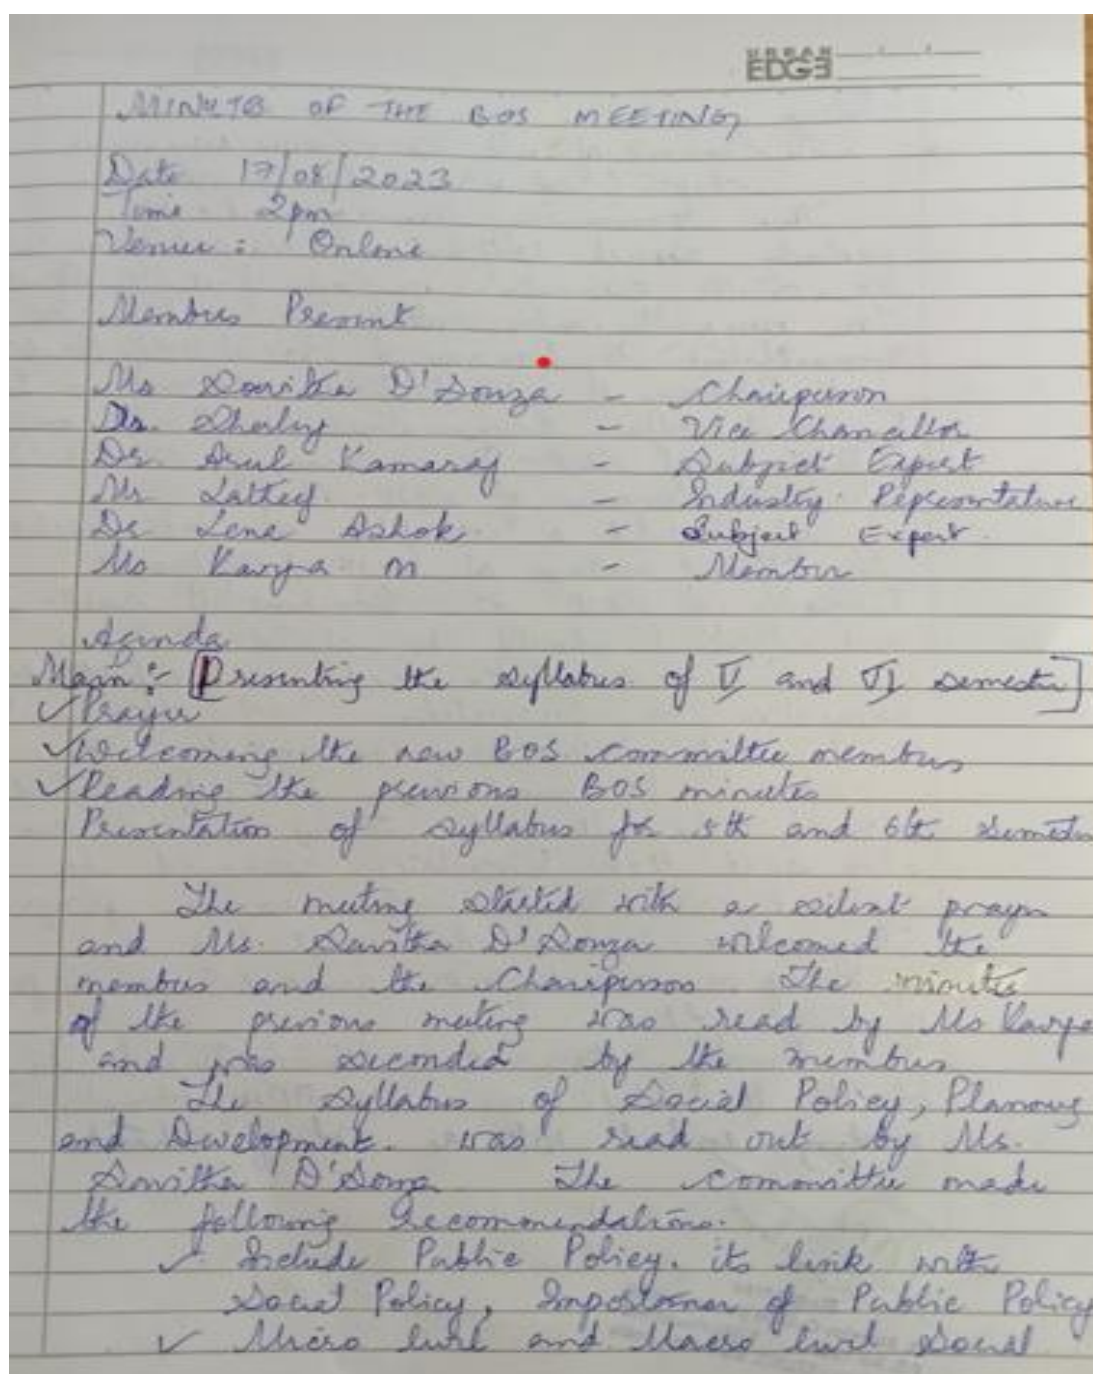 URBAN
EDGE
MINUTES OF THE BOS MEETING
Date 17/08/2023
Time 2pm
Venue : Online
Members Present
Ms Savitha D'Souza - Chairperson
Dr. Sherly - Vice Chancellor
Dr. Arul Kamaraj - Subject Expert
Mr Latheef - Industry Representative
Dr Lena Ashok - Subject Expert
Ms Kavya M - Member
Agenda
Main :- [Presenting the syllabus of V and VI semester]
✓ Prayer
✓ Welcoming the new BOS committee members
✓ Reading the previous BOS minutes
Presentation of syllabus for 5th and 6th semester
The meeting started with a silent prayer
and Ms. Savitha D'Souza welcomed the
members and the Chairperson The minutes
of the previous meeting was read by Ms Kavya
and was seconded by the members
The syllabus of Social Policy, Planning
and Development. was read out by Ms.
Savitha D'Souza The committee made
the following recommendations.
✓ Include Public Policy, its link with
Social Policy, Importance of Public Policy
✓ Micro level and Macro level Social